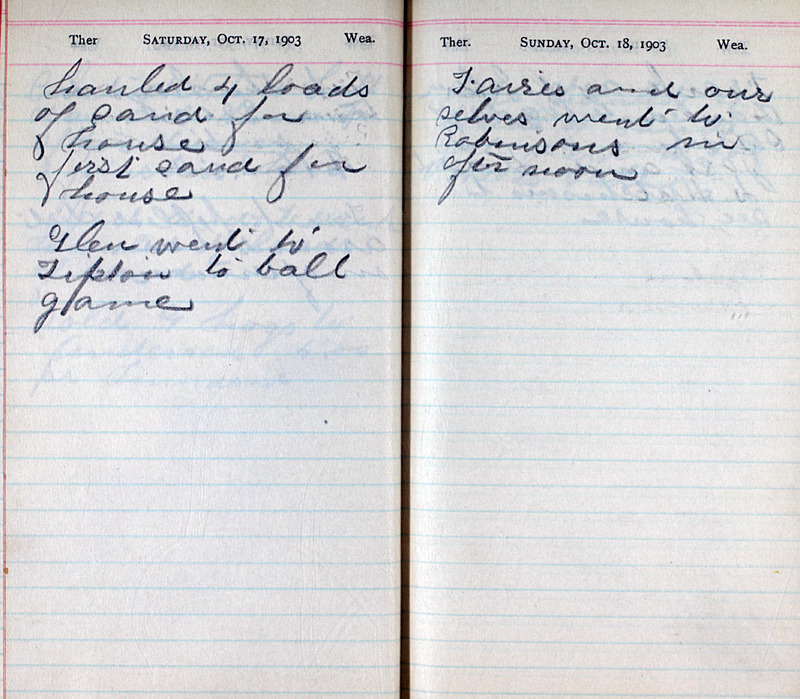 Ther SATURDAY, OCT. 17, 1903 Wea.
hauled 4 loads
of sand for
house
first sand for
house
Glen went to
Tipton to ball
game
Ther. SUNDAY, OCT. 18, 1903 Wea.
and our
selves went to
Robinsons in
after noon